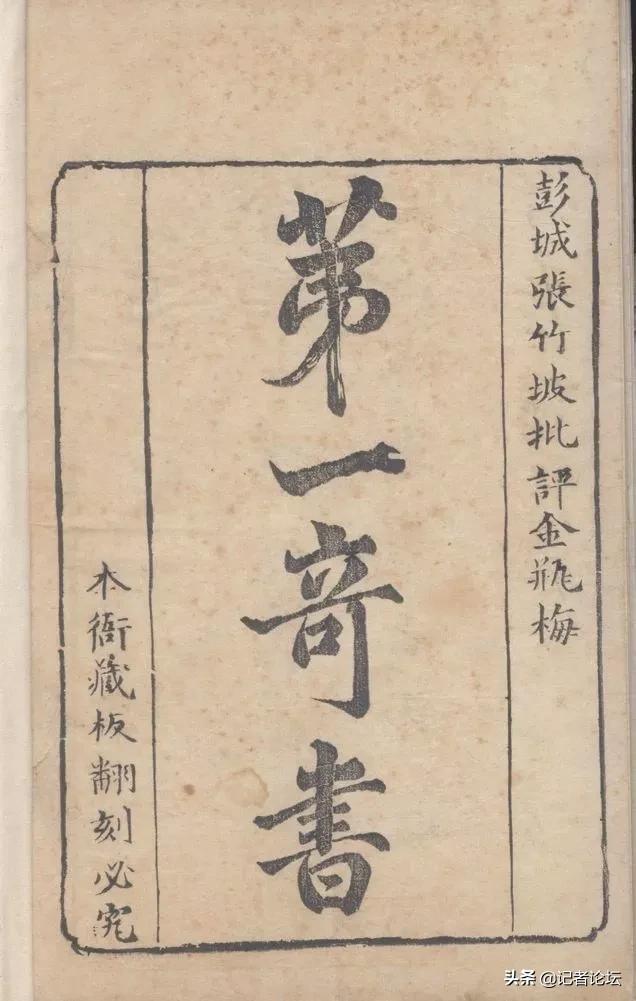 彭城張竹坡批評金瓶梅
第一奇書
本衙藏板翻刻必究
头条 @记者论坛